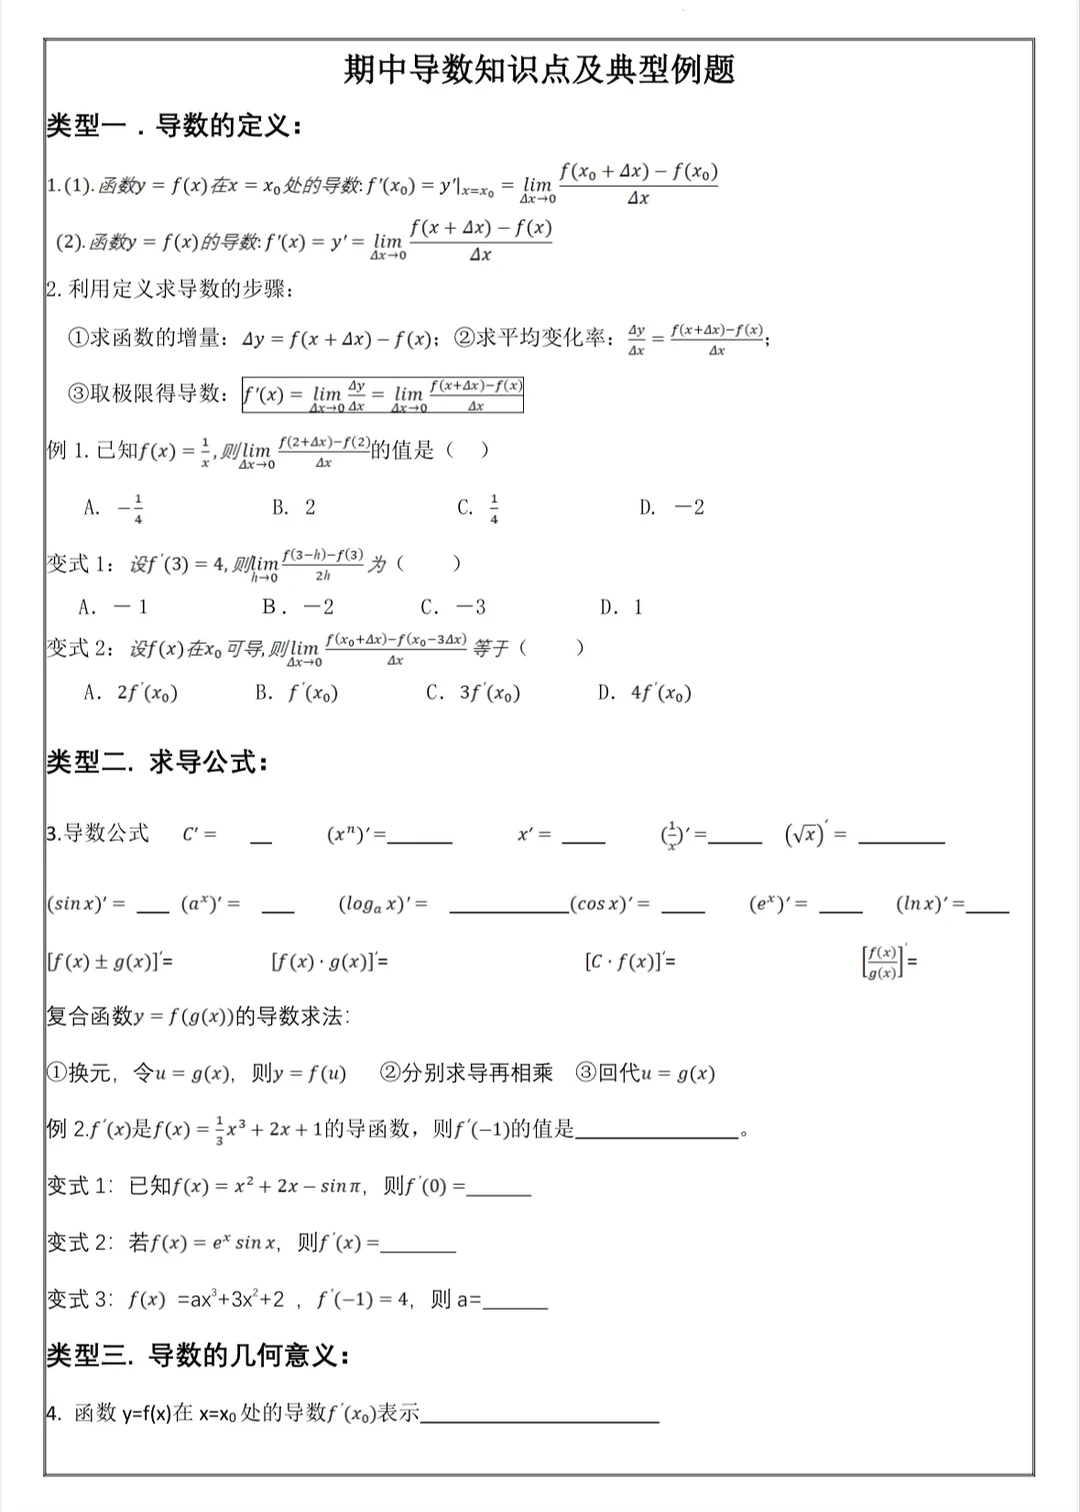 期中导数知识点及典型例题
类型一．导数的定义：
1.(1).函数y = f(x)在x = x₀处的导数: f′(x₀) = y′|ₓ₌ₓ₀ = lim(Δx→0) (f(x₀ + Δx) − f(x₀))/Δx
(2).函数y = f(x)的导数: f′(x) = y′ = lim(Δx→0) (f(x + Δx) − f(x))/Δx
2. 利用定义求导数的步骤：
①求函数的增量：Δy = f(x + Δx) − f(x)；②求平均变化率：Δy/Δx = (f(x+Δx)−f(x))/Δx；
③取极限得导数：f′(x) = lim(Δx→0) Δy/Δx = lim(Δx→0) (f(x+Δx)−f(x))/Δx
例 1. 已知f(x) = 1/x ,则lim(Δx→0) (f(2+Δx)−f(2))/Δx的值是（ ）
A. −1/4 B. 2 C. 1/4 D. －2
变式 1：设f′(3) = 4,则lim(h→0) (f(3−h)−f(3))/2h为（ ）
A．－1 B．－2 C．－3 D．1
变式 2：设f(x)在x₀可导,则lim(Δx→0) (f(x₀+Δx)−f(x₀−3Δx))/Δx等于（ ）
A．2f′(x₀) B．f′(x₀) C．3f′(x₀) D．4f′(x₀)
类型二．求导公式：
3.导数公式 C′ = __ (xⁿ)′=______ x′ = ____ (1/x)′=_____ (√x)′ = ________
(sin x)′ = ___ (aˣ)′ = ___ (logₐ x)′ = ___________(cos x)′ = ____ (eˣ)′ = ____ (ln x)′=____
[f(x) ± g(x)]′= [f(x) · g(x)]′= [C · f(x)]′= [f(x)/g(x)]′=
复合函数y = f(g(x))的导数求法：
①换元，令u = g(x)，则y = f(u) ②分别求导再相乘 ③回代u = g(x)
例 2.f′(x)是f(x) = 1/3x³ + 2x + 1的导函数，则f′(−1)的值是_______________。
变式 1：已知f(x) = x² + 2x − sin π，则f′(0) =______
变式 2：若f(x) = eˣ sin x，则f′(x) =_______
变式 3：f(x) =ax³+3x²+2 ，f′(−1) = 4，则 a=______
类型三．导数的几何意义：
4. 函数 y=f(x)在 x=x₀处的导数f′(x₀)表示______________________